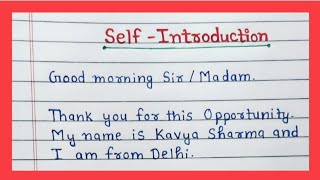 Self-Introduction
Good morning Sir/Madam.
Thank you for this Opportunity.
My name is Kavya Sharma and
I am from Delhi.